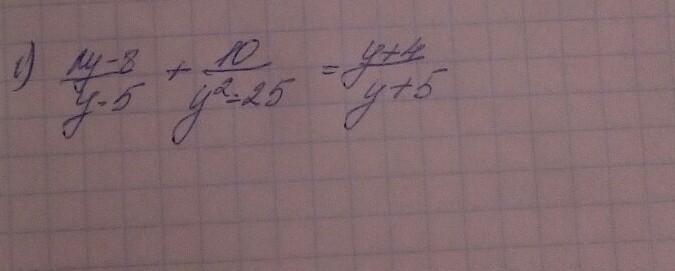 1) 2y-8/y-5 + 10/y²-25 = y+4/y+5